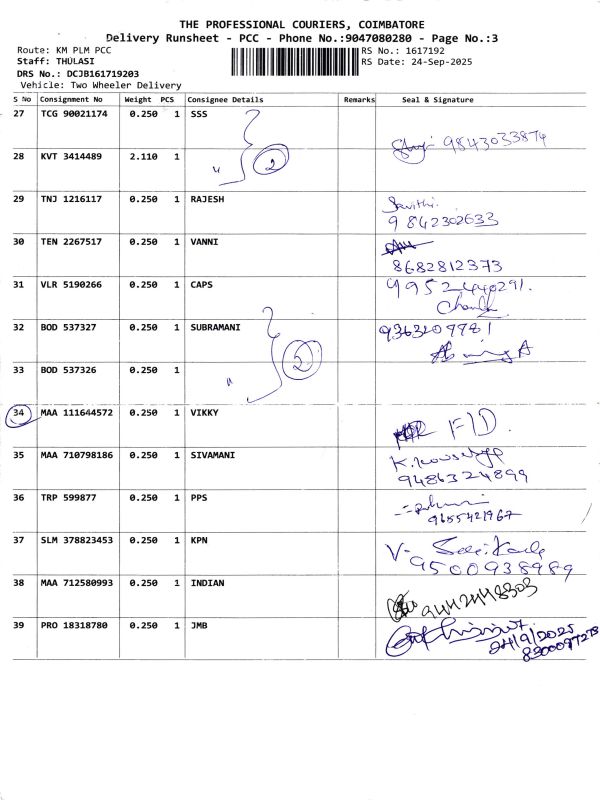 THE PROFESSIONAL COURIERS, COIMBATORE
Delivery Runsheet - PCC - Phone No.:9047080280 - Page No.:3
Route: KM PLM PCC
RS No.: 1617192
Staff: THULASI
RS Date: 24-Sep-2025
DRS No.: DCJB161719203
Vehicle: Two Wheeler Delivery
S No Consignment No Weight PCS Consignee Details Remarks Seal & Signature
27 TCG 90021174 0.250 1 SSS 9843033874
28 KVT 3414489 2.110 1 " 2
29 TNJ 1216117 0.250 1 RAJESH
9842302633
30 TEN 2267517 0.250 1 VANNI
8682812373
31 VLR 5190266 0.250 1 CAPS 9952440291.
32 BOD 537327 0.250 1 SUBRAMANI 9363209981
33 BOD 537326 0.250 1 " 2
34 MAA 111644572 0.250 1 VIKKY F/D.
35 MAA 710798186 0.250 1 SIVAMANI
9486324899
36 TRP 599877 0.250 1 PPS
9655421967
37 SLM 378823453 0.250 1 KPN
9500938989
38 MAA 712580993 0.250 1 INDIAN 9442448303
39 PRO 18318780 0.250 1 JMB
24/9/2025
8300097273